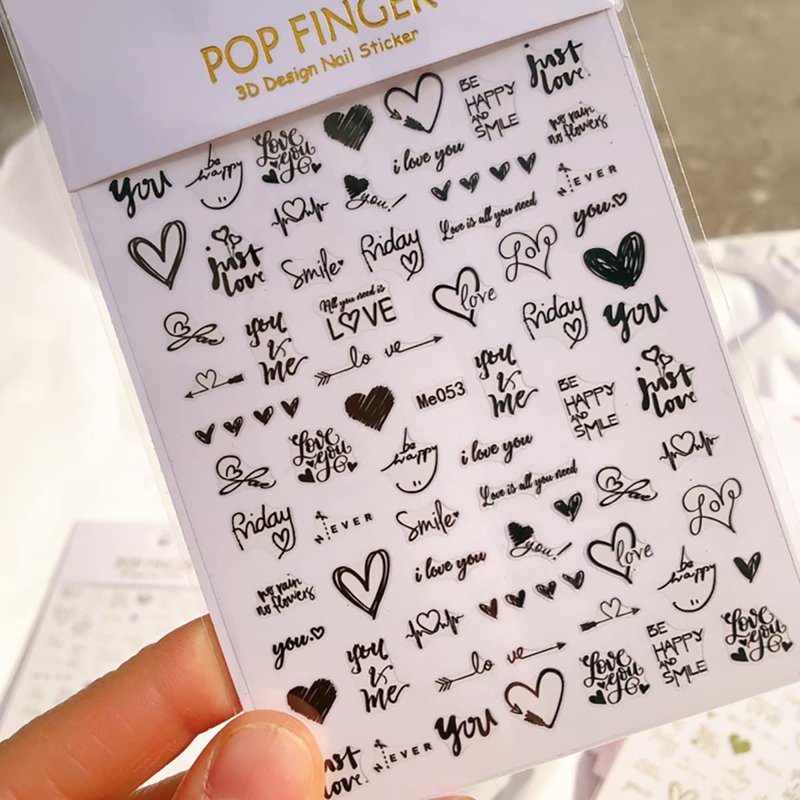 POP FINGER
3D Design Nail Sticker
just
love.
BE
HAPPY
AND
SMILE
Love
you
be
happy
you
i love you
no rain
no flowers
you!
NEVER
Love is all you need
you.
just
love
Smile
Friday
Love
All you need is
LOVE
love
you
&
me
Friday
you
love
Me053
you
&
me
BE
HAPPY
AND
SMILE
just
love
Love
you
be
happy
i love you
Love is all you need
Friday
NEVER
Smile
you!
love
Love
no rain
no flowers
i love you
be
happy
you.
you
&
me
love
Love
you
BE
HAPPY
AND
SMILE
Love
you
just
love.
NEVER
you